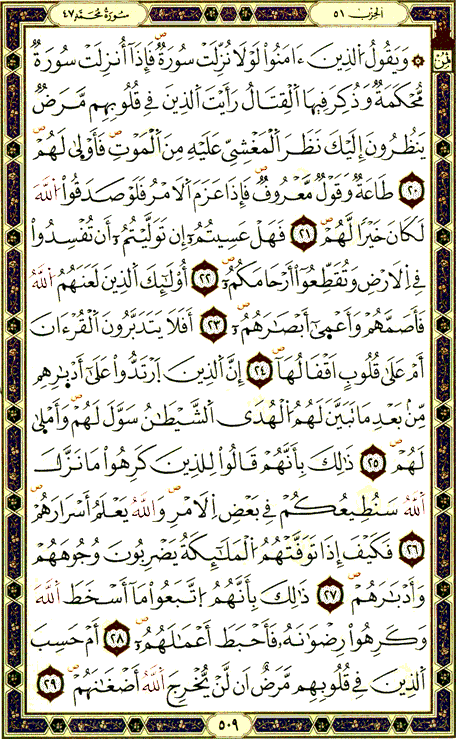 الحزب ٥١
سورة محمد ٤٧
ثمن
وَيَقُولُ الذِينَ ءَامَنُوا لَوْلَا نُزِّلَتْ سُورَةٌ فَإِذَا أُنزِلَتْ سُورَةٌ
مُّحْكَمَةٌ وَذُكِرَ فِيهَا الْقِتَالُ رَأَيْتَ الذِينَ فِي قُلُوبِهِم مَّرَضٌ
يَنظُرُونَ إِلَيْكَ نَظَرَ الْمَغْشِيِّ عَلَيْهِ مِنَ الْمَوْتِ فَأَوْلَىٰ لَهُمْ
٢٠ طَاعَةٌ وَقَوْلٌ مَّعْرُوفٌ فَإِذَا عَزَمَ الَامْرُ فَلَوْ صَدَقُوا اللَّهَ
لَكَانَ خَيْرًا لَّهُمْ ٢١ فَهَلْ عَسِيتُمُۥ إِن تَوَلَّيْتُمُۥ أَن تُفْسِدُوا
فِي الَارْضِ وَتُقَطِّعُوا أَرْحَامَكُمُۥ ٢٢ أُوْلَٰئِكَ الذِينَ لَعَنَهُمُ اللَّهُ
فَأَصَمَّهُمْ وَأَعْمَىٰ أَبْصَٰرَهُمُۥ ٢٣ أَفَلَا يَتَدَبَّرُونَ الْقُرْءَانَ
أَمْ عَلَىٰ قُلُوبٍ اَقْفَالُهَا ٢٤ إِنَّ الذِينَ اَرْتَدُّوا عَلَىٰ أَدْبَٰرِهِم
مِّنۢ بَعْدِ مَا تَبَيَّنَ لَهُمُ الْهُدَى الشَّيْطَٰنُ سَوَّلَ لَهُمْ وَأَمْلَىٰ
لَهُمْ ٢٥ ذَٰلِكَ بِأَنَّهُمْ قَالُوا لِلذِينَ كَرِهُوا مَا نَزَّلَ
اللَّهُ سَنُطِيعُكُمْ فِي بَعْضِ الَامْرِ وَاللَّهُ يَعْلَمُ أَسْرَارَهُمْ
٢٦ فَكَيْفَ إِذَا تَوَفَّتْهُمُ الْمَلَٰئِكَةُ يَضْرِبُونَ وُجُوهَهُمْ
وَأَدْبَٰرَهُمْ ٢٧ ذَٰلِكَ بِأَنَّهُمُ اُتَّبَعُوا مَا أَسْخَطَ اللَّهَ
وَكَرِهُوا رِضْوَٰنَهُۥ فَأَحْبَطَ أَعْمَٰلَهُمُۥ ٢٨ أَمْ حَسِبَ
الذِينَ فِي قُلُوبِهِم مَّرَضٌ اَن لَّنْ يُّخْرِجَ اللَّهُ أَضْغَٰنَهُمْ ٢٩
٥٠٩